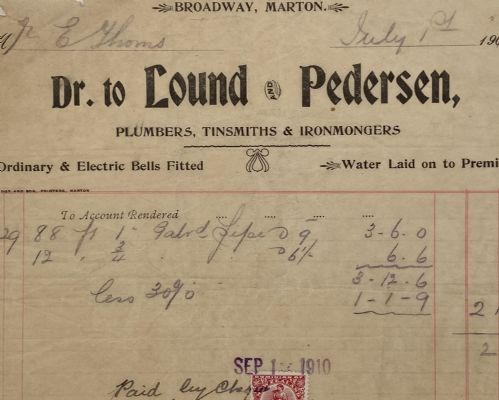 BROADWAY, MARTON.
E Thoms July 1st 190
Dr. to Lound AND Pedersen,
PLUMBERS, TINSMITHS & IRONMONGERS
Ordinary & Electric Bells Fitted Water Laid on to Premi
PRINTERS, MARTON
To Account Rendered .... .... .... ....
29 88 ft 1" Galvd Pipe @ 9 3-6-0
12 " 3/4 @ 6½ 6.6
3-12-6
less 30% 1-1-9
2
2
SEP 1 1910
Paid by